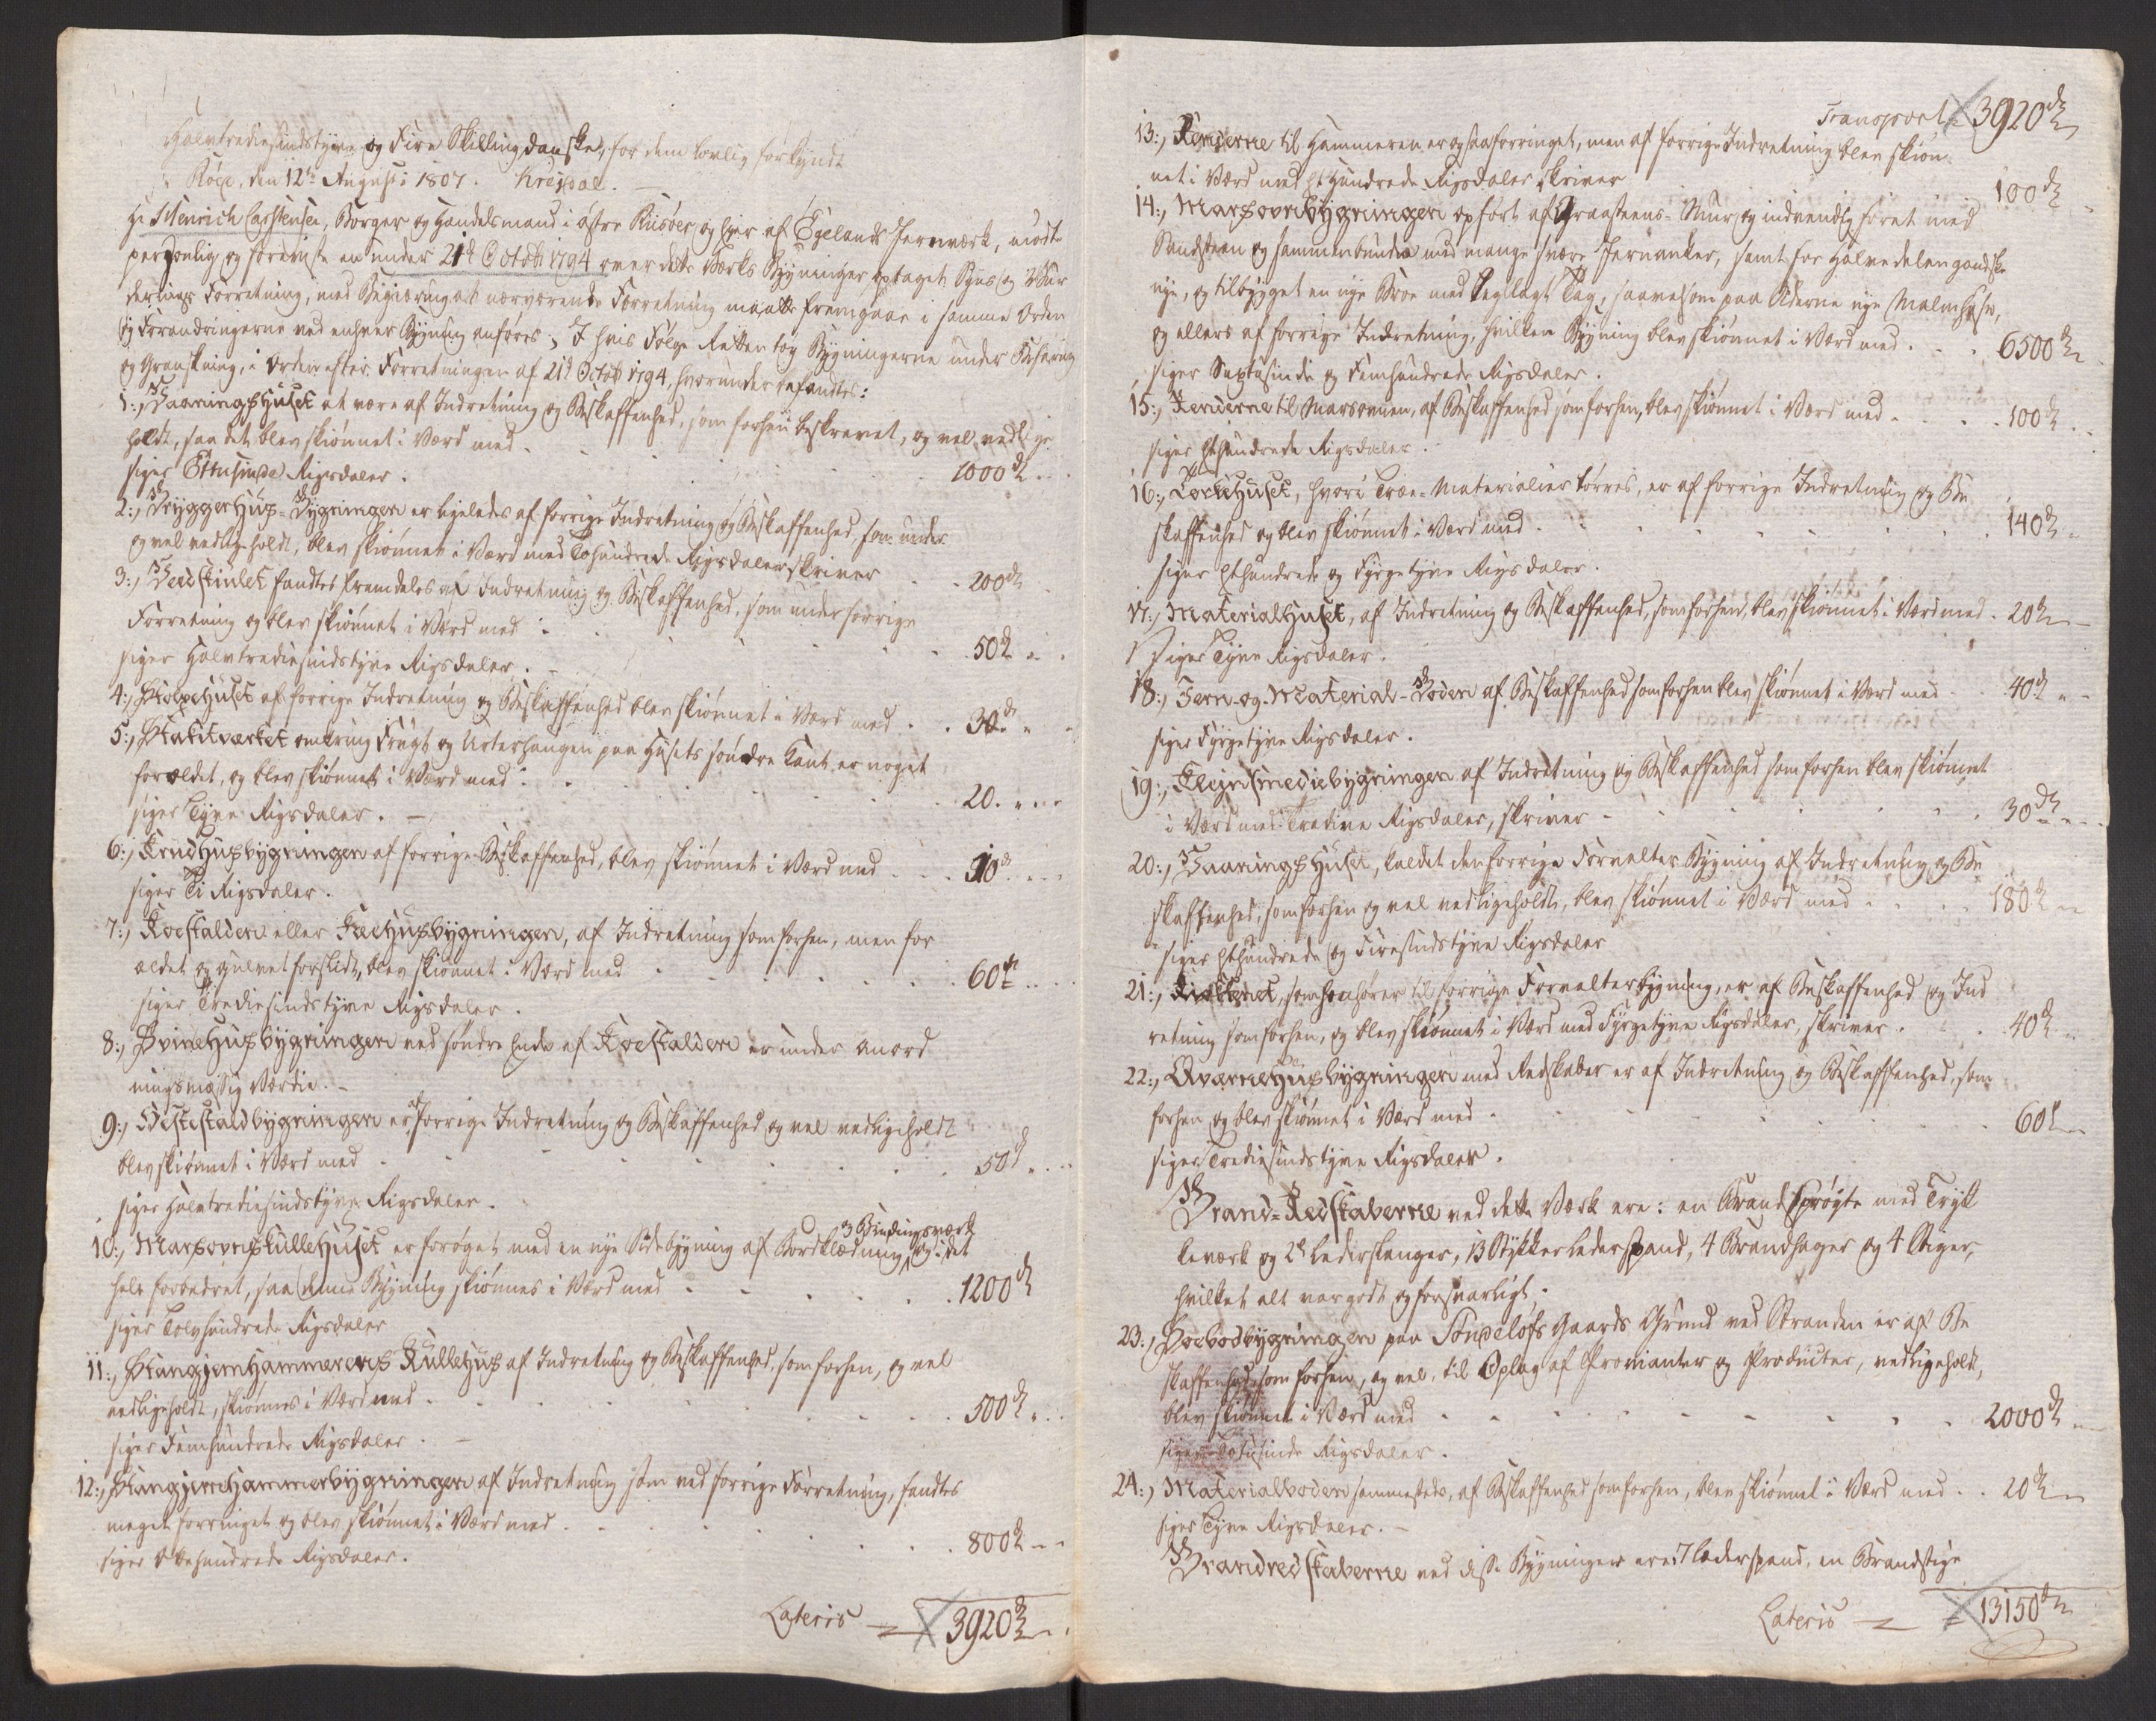 Halvtrediesindstyve og Fire Skilling danske, for dem lovlig forkyndt
Röed, den 12te August 1807. Krejdal.
Hr Henrich Carstensen, Borger og Handelsmand i östre Riisöer og Ejer af Egelands Jernværk, mödte
personlig og foreviste en under 21de Octobr 1794 over dette Værks Bygninger optaget Syns og Vur
derings Forretning, med Begiering at nærværende Forretning maatte fremgaae i samme Orden
og Forandringerne ved enhver Bygning anföres; I hvis Fölge Retten tog Bygningerne under Besigtig
og Granskning, i Orden efter Forretningen af 21de Octob 1794, hvorunder befandtes:
1:, Vaaningshuset at være af Indretning og Beskaffenhed, som forhen beskrevet, og vel vedlige
holdt, saa det blev skiönnet i Værd med . . . 1000 d
siger Ettusinde Rigsdaler.
2:, Bryggerhus-Bygningen er ligeledes af forrige Indretning og Beskaffenhed, som under
og vel vedligeholdt, blev skiönnet i Værd med Tohundrede Rigsdaler skriver . . 200 d
3:, Vedskiulet fandtes fremdeles af Indretning og Beskaffenhed, som under forrige
Forretning og blev skiönnet i Værd med . . . 50 d
siger Halvtrediesindstyve Rigsdaler.
4:, Stolpehuset af forrige Indretning og Beskaffenhed blev skiönnet i Værd med . . 30 d
5:, Stakitværket omkring Frugt og Urtehaugen paa Husets söndre Kant er noget
forældet, og blev skiönnet i Værd med . . . 20.
siger Tyve Rigsdaler.
6:, Krudhusbygningen af forrige Beskaffenhed, blev skiönnet i Værd med . . . 10 d
siger Ti Rigsdaler.
7:, Koestalden eller Fæehusbygningen, af Indretning som forhen, men for
ældet og Gulvet forslidt, blev skiönnet i Værd med . . . 60 d
siger Trediesindstyve Rigsdaler.
8:, Svinehusbygningen ved söndre Ende af Koestalden er under anord
ningsmæssig Værdie.
9:, Hestestaldbygningen er af forrige Indretning og Beskaffenhed og vel vedligeholdt
blev skiönnet i Værd med . . . 50 d
siger Halvtrediesindstyve Rigsdaler.
10:, Marsovnskullehuset er foröget med en nye Sidebygning af Bordklædning og Bindingsværk, og i det
hele forbedret, saa denne Bygning skiönnes i Værd med . . . 1200 d
siger Tolvhundrede Rigsdaler
11:, Stangjernhammerens Kullehus af Indretning og Beskaffenhed, som forhen, og vel
vedligeholdt, skiönnes i Værd med . . . 500 d
siger Femhundrede Rigsdaler.
12:, Stangjernhammerbygningen af Indretning som ved forrige Forretning, fandtes
meget forringet og blev skiönnet i Værd med . . . 800 d
siger Ottehundrede Rigsdaler.
Lateris 3920 d
Transport 3920 d
13:, Renderne til Hammeren er ogsaa forringet, men af forrige Indretning blev skiön
net i Værd med Et Hundrede Rigsdaler skriver . . . 100 d
14:, Marsovnbygningen opfört af Graasteens-Mur og indvendig foret med
Sandsteen og sammenbunden med mange svære Jernanker, samt for Halvedelen gandske
nye, og tilbygget en nye Broe med Teglagt Tag, saavelsom paa Siderne nye Malmhuse,
og ellers af forrige Indretning, hvilken Bygning blev skiönnet i Værd med . . . 6500 d
siger Sextusinde og Femhundrede Rigsdaler.
15:, Renderne til Marsovnen, af Beskaffenhed som forhen, blev skiönnet i Værd med . . . 100 d
siger Ethundrede Rigsdaler.
16:, Törkehuset, hvori Træe-Materialier törres, er af forrige Indretning og Be
skaffenhed og blev skiönnet i Værd med . . . 140 d
siger Ethundrede og Fyrgetyve Rigsdaler.
17:, Materialhuset, af Indretning og Beskaffenhed, som forhen, blev skiönnet i Værd med . 20 d
siger Tyve Rigsdaler.
18:, Jern- og Material-Boden af Beskaffenhed som forhen blev skiönnet i Værd med . . 40 d
siger Fyrgetyve Rigsdaler.
19:, Klejnsmediebygningen af Indretning og Beskaffenhed som forhen blev skiönnet
i Værd med Tredive Rigsdaler, skriver . . . 30 d
20:, Vaaningshuset, kaldet den forrige Forvalter Bygning af Indretning og Be
skaffenhed, som forhen og vel vedligeholdt, blev skiönnet i Værd med . . . 180 d
siger Ethundrede og Firesindstyve Rigsdaler
21:, som henhörer til forrige Forvalterbygning, er af Beskaffenhed og Ind
retning som forhen, og blev skiönnet i Værd med Fyrgetyve Rigsdaler, skriver . . . 40 d
22:, Qværnehusbygningen med Redskaber er af Indretning og Beskaffenhed, som
forhen og blev skiönnet i Værd med . . . 60 d
siger Trediesindstyve Rigsdaler.
Brand-Redskaberne ved dette Værk ere: en Brandspröyte med Tryk
keværk og 2de Læderslanger, 13 Stykker Læderspand, 4 Brandhager og 4 Stiger,
hvilket alt var godt og forsvarligt.
23:, Söebodbygningen paa Söndelöfs Gaards Grund ved Stranden er af Be
skaffenhed som forhen, og vel, til Oplag af Provianter og Producter, vedligeholdt,
blev skiönnet i Værd med . . . 2000 d
siger Totusinde Rigsdaler.
24:, Materialboden sammesteds, af Beskaffenhed som forhen, blev skiönnet i Værd med . . 20 d
siger Tyve Rigsdaler.
Brandredskaberne ved disse Bygninger ere 7 Læderspand, en Brandstige
Lateris 13150 d